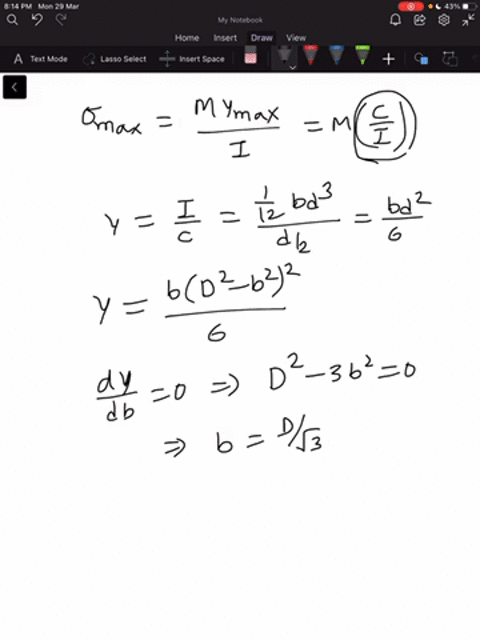 8:14 PM Mon 29 Mar
43%
My Notebook
Home Insert Draw View
A Text Mode Lasso Select Insert Space
σmax = M ymax / I = M (C/I)
y = I/c = 1/12 bd³ / d/2 = bd²/6
y = b(D²-b²)² / 6
dy/db = 0 ⇒ D² - 3b² = 0
⇒ b = D/√3